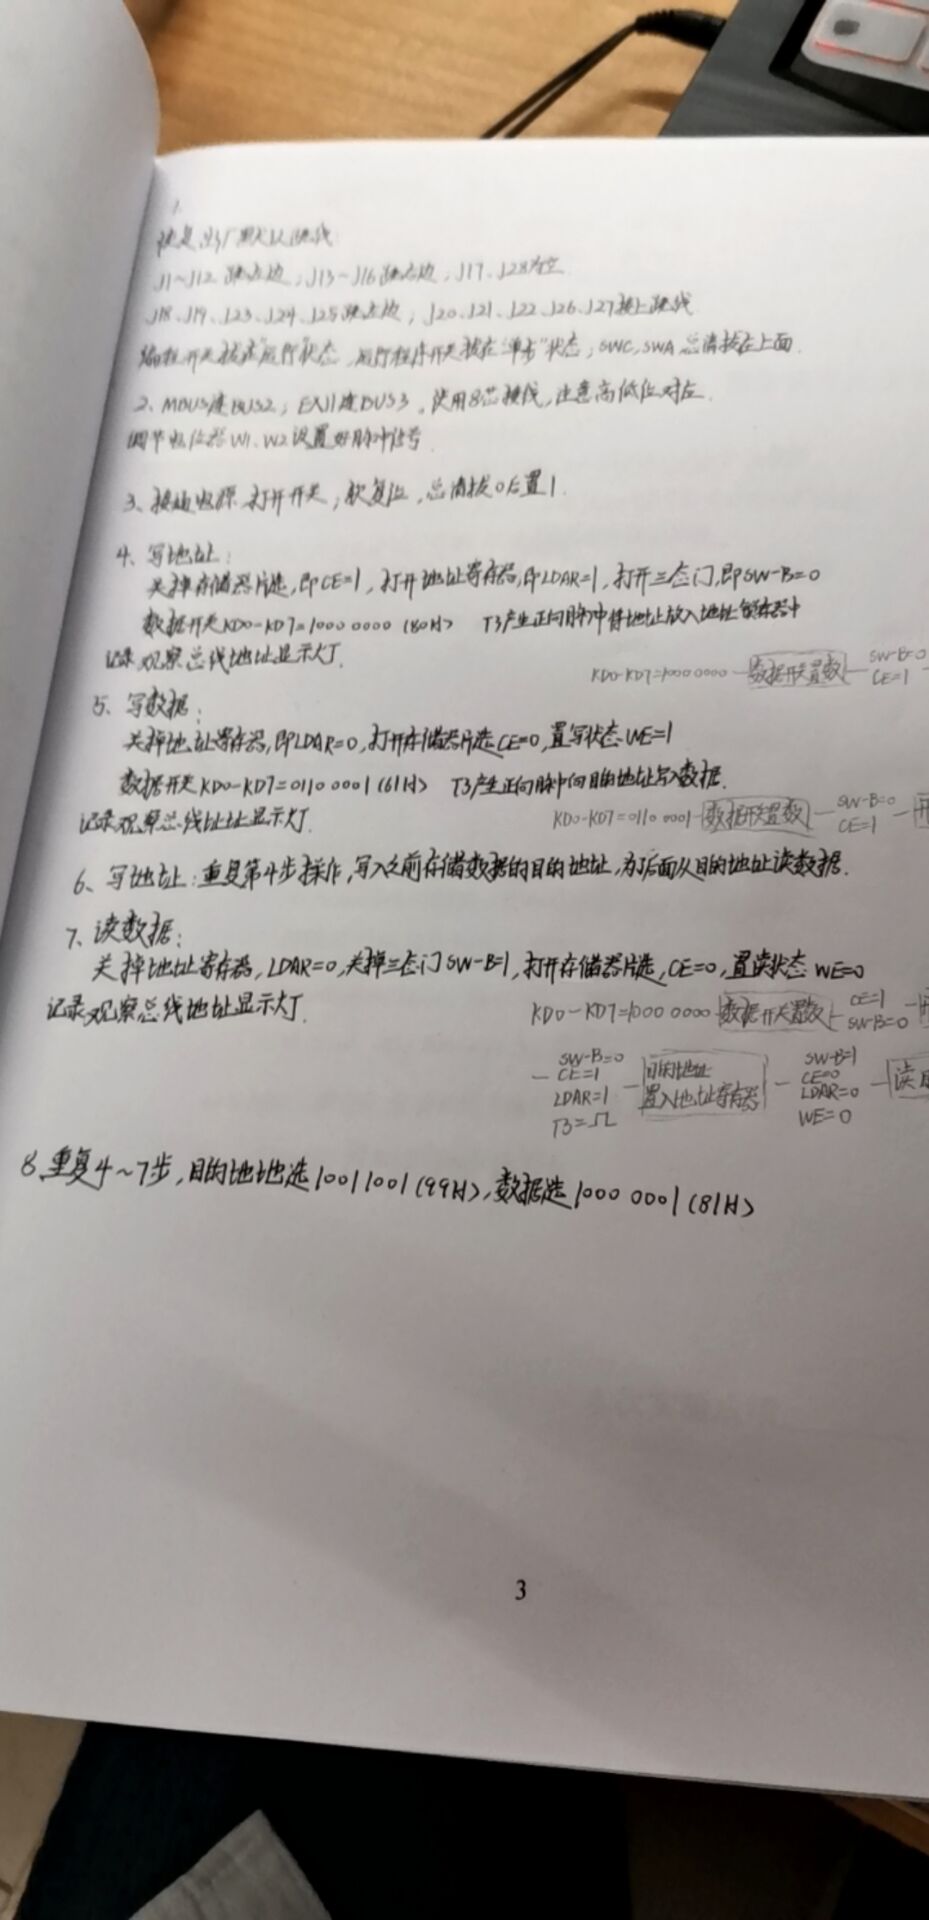 1.
恢复出厂默认跳线
J1~J12跳左边;J13~J16跳右边;J17、J28为空
J18、J19、J23、J24、J25跳左边;J20、J21、J22、J26、J27接上跳线
编程开关拨在"运行"状态,运行程序开关拨在"单步"状态;SWC,SWA 总清拨在上面.
2、MBUS连BUS2;EXJ1连BUS3。使用8芯接线,注意高低位对应.
调节电位器W1、W2设置好脉冲信号
3、接通电源 打开开关;软复位,总清拨0后置1.
4、写地址:
关掉存储器片选,即CE=1,打开地址寄存器,即LDAR=1,打开三态门,即SW-B=0
数据开关KD0-KD7=1000 0000(80H> T3产生正向脉冲将地址放入地址寄存器中
记录观察总线地址显示灯.
KD0-KD7=1000 0000—数据开关置数—SW-B=0 CE=1
5、写数据:
关掉地址寄存器,即LDAR=0,打开存储器片选CE=0,置写状态WE=1
数据开关KD0-KD7=0110 0001(61H> T3产生正向脉冲向目的地址写入数据.
记录观察总线地址显示灯.
KD0-KD7=0110 0001—数据开关置数—SW-B=0 CE=1—
6、写地址:重复第4步操作,写入之前存储数据的目的地址,为了后面从目的地址读数据.
7、读数据:
关掉地址寄存器,LDAR=0,关掉三态门SW-B=1,打开存储器片选,CE=0,置读状态 WE=0
记录观察总线地址显示灯.
KD0-KD7=1000 0000—数据开关置数—CE=1 SW-B=0—
—SW-B=0 CE=1 LDAR=1 T3=⎍—目的地址置入地址寄存器—SW-B=1 CE=0 LDAR=0 WE=0—读
8、重复4~7步,目的地地选10011001(99H>,数据选1000 0001(81H>
3